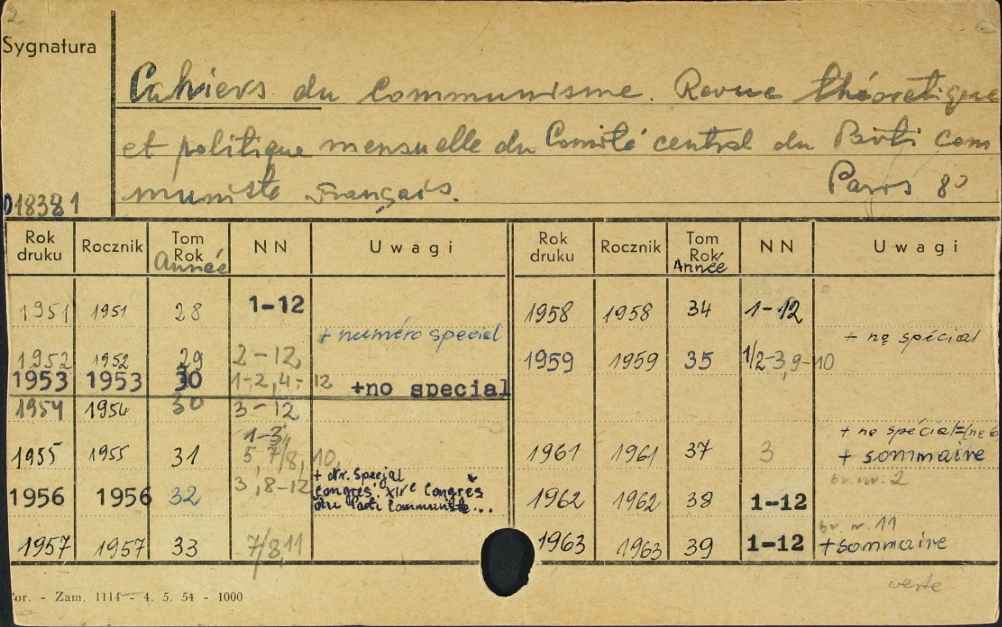 2
Sygnatura
Cahiers du Communisme. Revue théoretique
et politique mensuelle du Comité central du Parti com
muniste Français. Paris 8º
018381
Rok druku Rocznik Tom Rok Année NN Uwagi Rok druku Rocznik Tom Rok Année NN Uwagi
1951 1951 28 1-12 1958 1958 34 1-12
+ numéro special + nº spécial
1952 1952 29 2-12 1959 1959 35 1/2-3,9-10
1953 1953 30 1-2,4-12 +no special
1954 1954 30 3-12
1-3, + nº spécial=(nº 6
1955 1955 31 5,7/8,10, 1961 1961 37 3 + sommaire
+ nr. specjal
1956 1956 32 3,8-12 Congrès. XIVe Congrès 1962 1962 38 1-12 br. nr. 2
du Parti Communiste...
1957 1957 33 7/8,11 1963 1963 39 1-12 br. nr. 11
+sommaire
verte
or. - Zam. 1114 - 4. 5. 54 - 1000